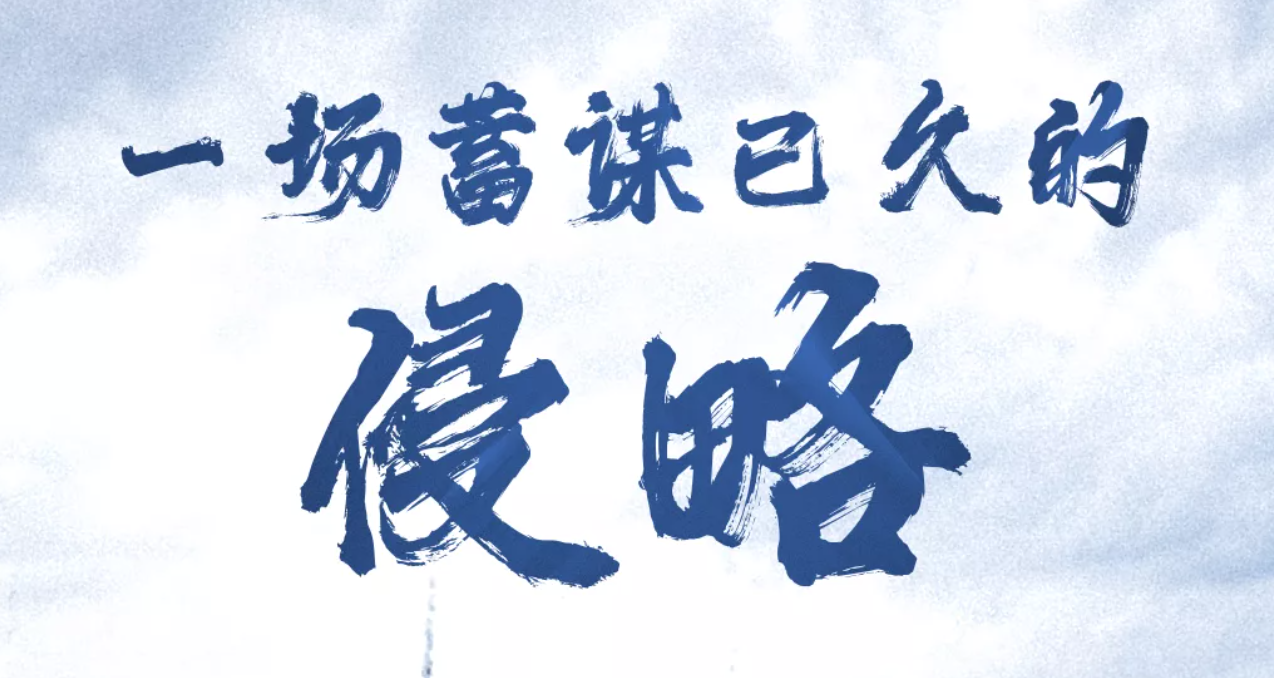 一场蓄谋已久的
侵略